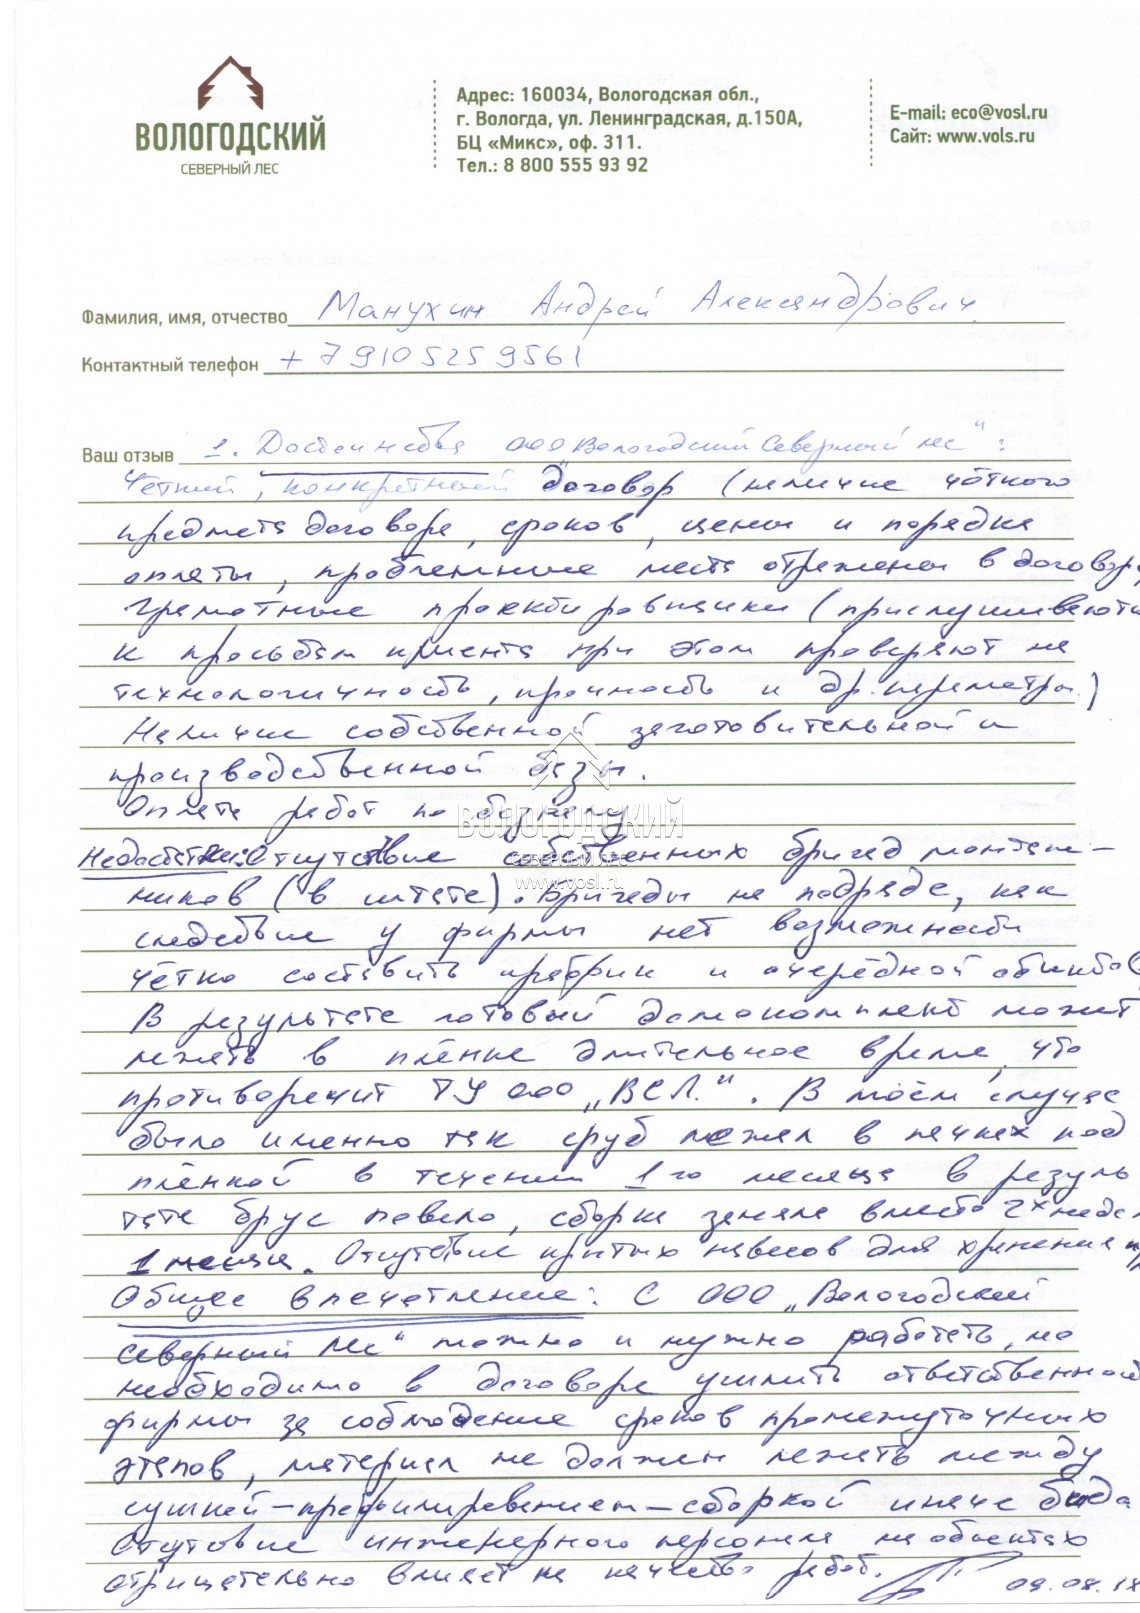 ВОЛОГОДСКИЙ
СЕВЕРНЫЙ ЛЕС
Адрес: 160034, Вологодская обл.,
г. Вологда, ул. Ленинградская, д.150А,
БЦ «Микс», оф. 311.
Тел.: 8 800 555 93 92
E-mail: eco@vosl.ru
Сайт: www.vols.ru
Фамилия, имя, отчество Манухин Андрей Александрович
Контактный телефон +79105259561
Ваш отзыв 1. Достоинства ООО Вологодский Северный лес":
Чёткий, конкретный договор (наличие чёткого
предмета договора, сроков, цены и порядка
оплаты, проблемные места отражены в договоре
Грамотные проектировщики (прислушиваются
к просьбам клиента при этом проверяют на
технологичность, прочность и др. параметры.)
Наличие собственной заготовительной и
производственной базы.
Оплата работ по безналу
Недостатки: Отсутствие собственных бригад монтаж-
ников (в штате). Бригады на подряде, как
следствие у фирмы нет возможности
чётко составить график и очерёдной
В результате готовый домокомплект может
лежать в плёнке длительное время, что
противоречит ТУ ООО „ВСЛ". В моём случае
было именно так сруб лежал в пачках под
плёнкой в течении 1го месяца в резуль
тате брус повело, сборка заняла вместо 2х недель
1 месяц. Отсутствие крытых навесов для хранения
Общее впечатление: С ООО „Вологодский
северный лес" можно и нужно работать, но
необходимо в договоре усилить ответственность
фирмы за соблюдение сроков промежуточных
этапов, материал не должен лежать между
сушкой-профилированием-сборкой иначе беда
Отсутствие инженерного персонала на объектах
отрицательно влияет на качество работ. 09.08.18
ВОЛОГОДСКИЙ
СЕВЕРНЫЙ ЛЕС
www.vosl.ru